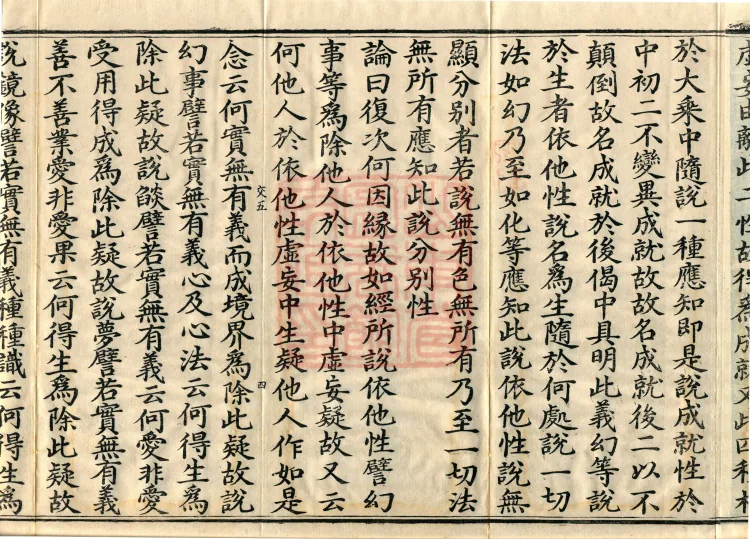 於大乘中隨說一種應知即是說成就性於
中初二不變異成就故故名成就後二以不
顛倒故名成就於後偈中具明此義幻等說
於生者依他性說名爲生隨於何處說一切
法如幻乃至如化等應知此說依他性說無
顯分別者若說無有色無所有乃至一切法
無所有應知此說分別性
論曰復次何因緣故如經所說依他性譬幻
事等爲除他人於依他性中虛妄疑故又云
何他人於依他性虛妄中生疑他人作如是
交八五
四
念云何實無有義而成境界爲除此疑故說
幻事譬若實無有義心及心法云何得生爲
除此疑故說燄譬若實無有義云何愛非愛
受用得成爲除此疑故說夢譬若實無有義
善不善業愛非愛果云何得生爲除此疑故
說鏡像譬若實無有義種種識云何得生爲